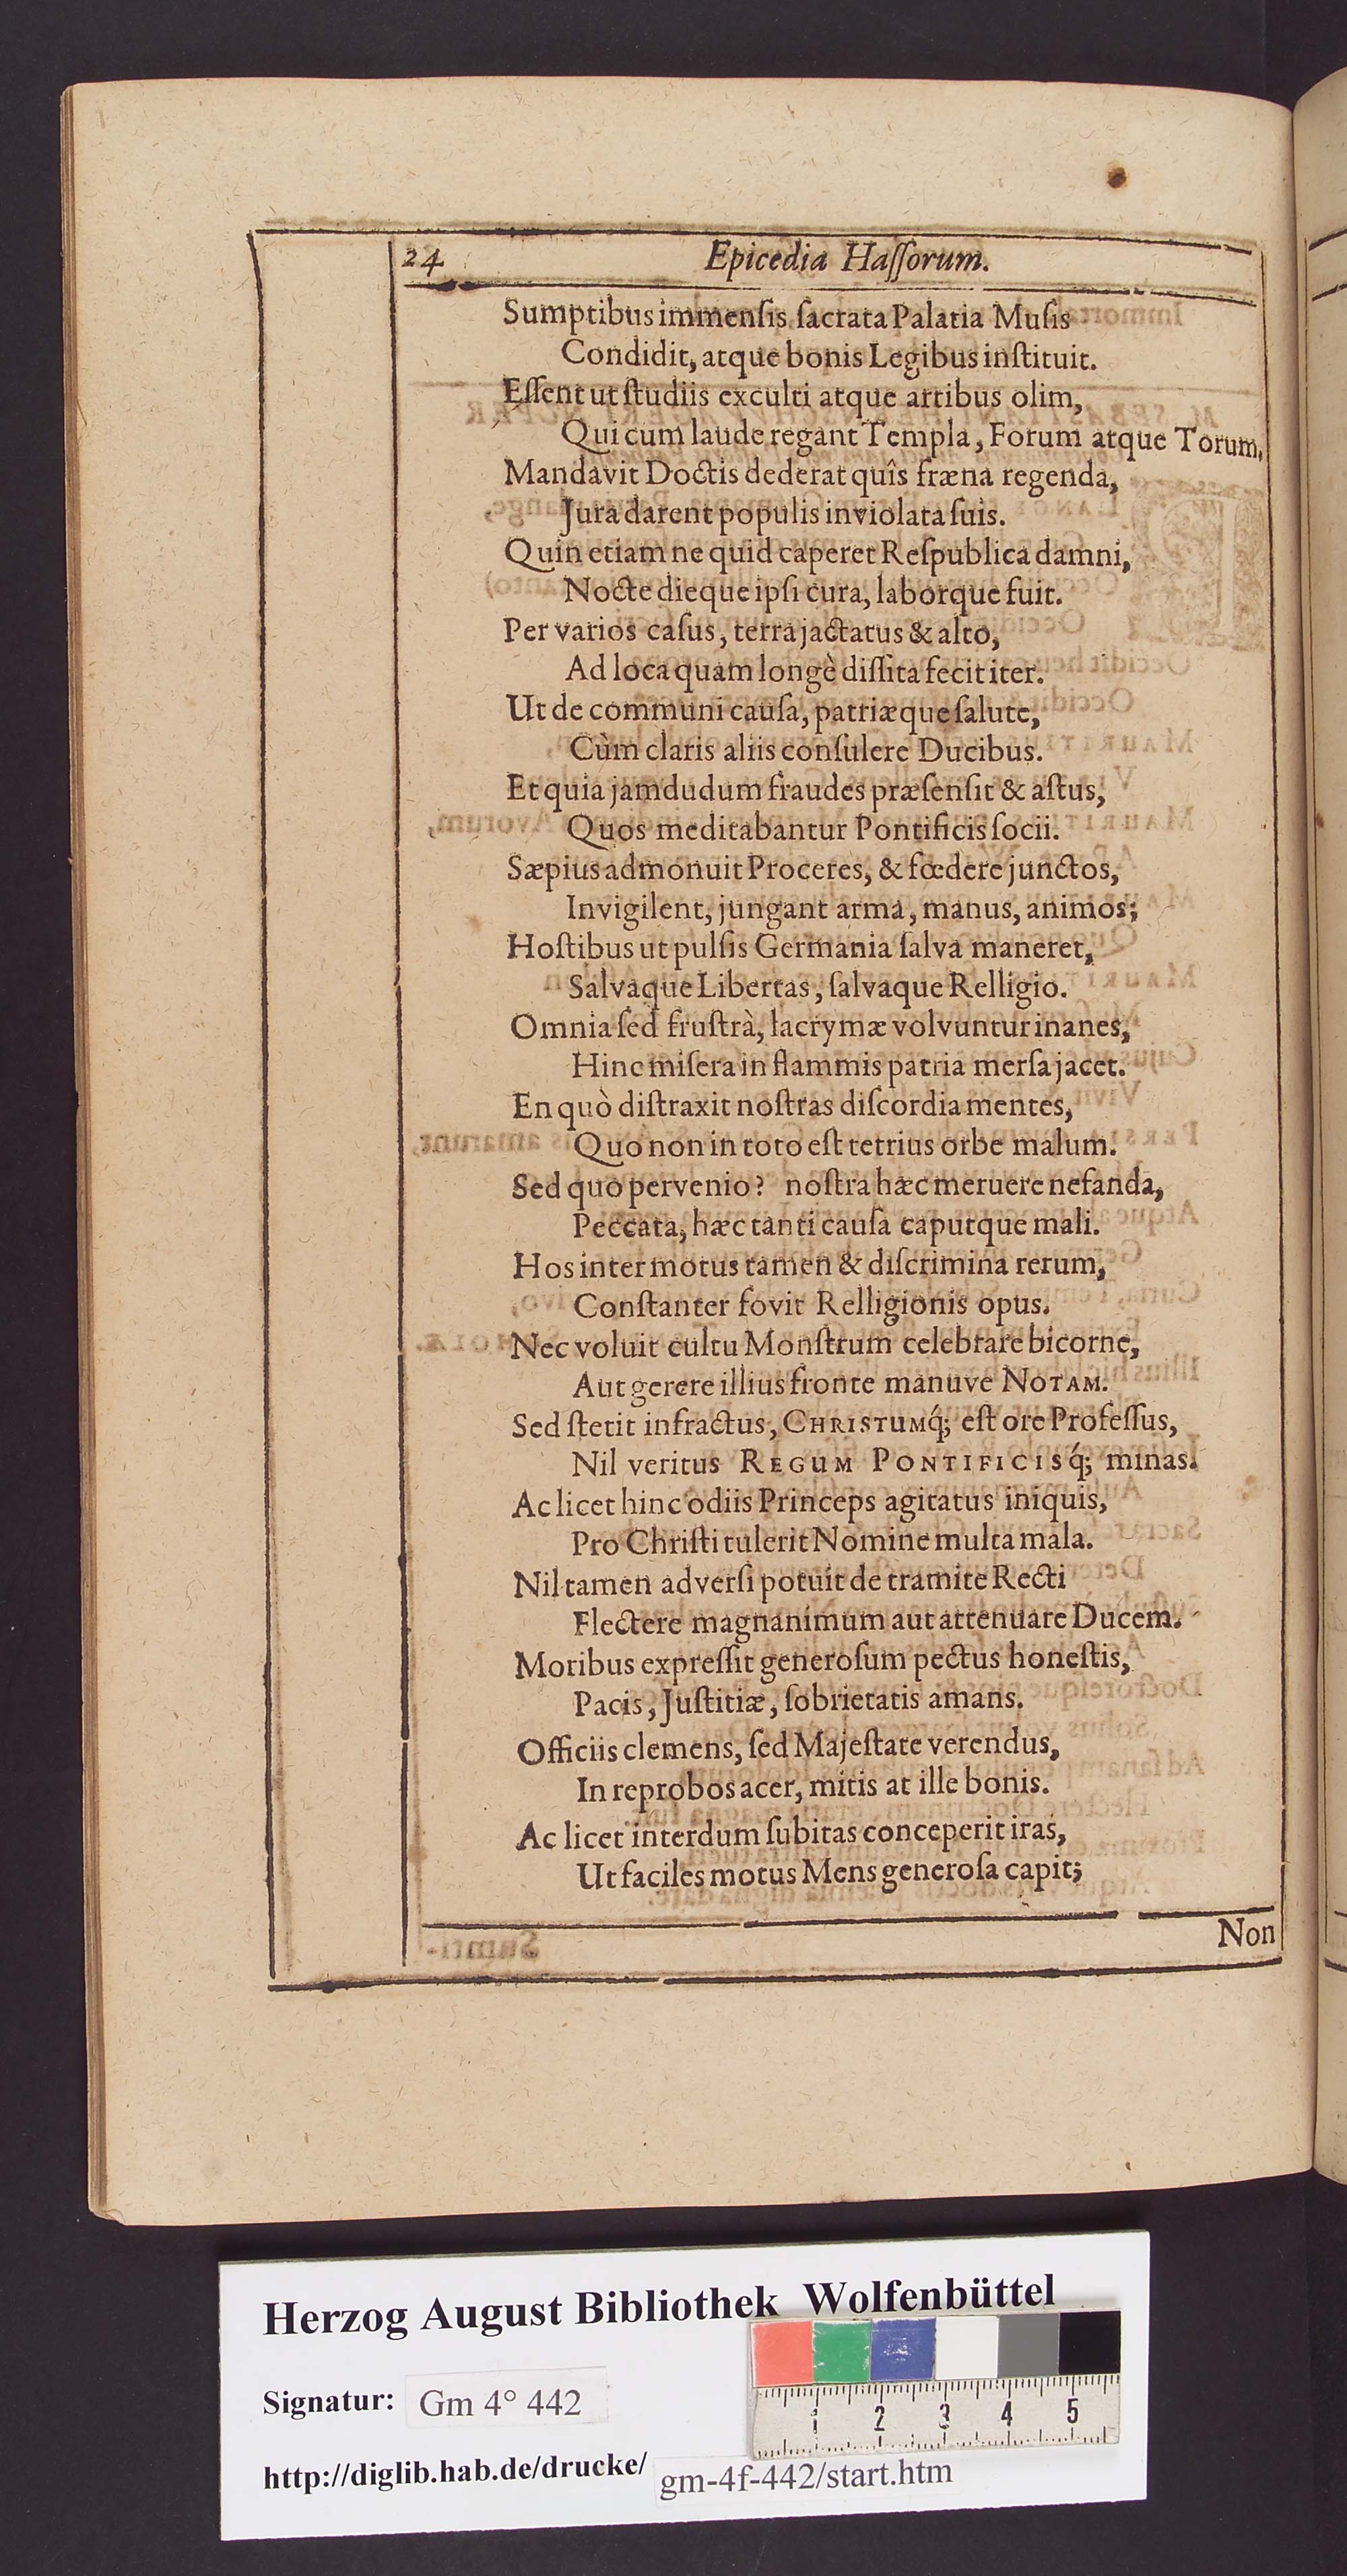 24 Epicedia Haſſorum.
Sumptibus immenſis ſacrata Palatia Muſis
Condidit, atque bonis Legibus inſtituit.
Eſſent ut ſtudiis exculti atque artibus olim,
Qui cum laude regant Templa, Forum atque Torum,
Mandavit Doctis dederat quîs fræna regenda,
Jura darent populis inviolata ſuis.
Quin etiam ne quid caperet Reſpublica damni,
Nocte dieque ipſi cura, laborque fuit.
Per varios caſus, terra jactatus & alto,
Ad loca quam longè diſſita fecit iter.
Ut de communi cauſa, patriæque ſalute,
Cùm claris aliis conſulere Ducibus.
Et quia jamdudum fraudes præſenſit & aſtus,
Quos meditabantur Pontificis ſocii.
Sæpius admonuit Proceres, & fœdere junctos,
Invigilent, jungant arma, manus, animos;
Hoſtibus ut pulſis Germania ſalva maneret,
Salvaque Libertas, ſalvaque Relligio.
Omnia ſed fruſtrà, lacrymæ volvuntur inanes,
Hinc miſera in flammis patria merſa jacet.
En quò diſtraxit noſtras diſcordia mentes,
Quo non in toto eſt tetrius orbe malum.
Sed quo pervenio? noſtra hæc meruere nefanda,
Peccata, hæc tanti cauſa caputque mali.
Hos inter motus tamen & diſcrimina rerum,
Conſtanter fovit Relligionis opus.
Nec voluit cultu Monſtrum celebrare bicorne,
Aut gerere illius fronte manuve NOTAM.
Sed ſtetit infractus, CHRISTUMq́; eſt ore Profeſſus,
Nil veritus REGUM PONTIFICISq́; minas.
Ac licet hinc odiis Princeps agitatus iniquis,
Pro Chriſti tulerit Nomine multa mala.
Nil tamen adverſi potuit de tramite Recti
Flectere magnanimum aut attenuare Ducem.
Moribus expreſſit generoſum pectus honeſtis,
Pacis, Juſtitiæ, ſobrietatis amans.
Officiis clemens, ſed Majeſtate verendus,
In reprobos acer, mitis at ille bonis.
Ac licet interdum ſubitas conceperit iras,
Ut faciles motus Mens generoſa capit;
Non
Herzog August Bibliothek Wolfenbüttel
Signatur: Gm 4° 442
1 2 3 4 5
http://diglib.hab.de/drucke/ gm-4f-442/start.htm